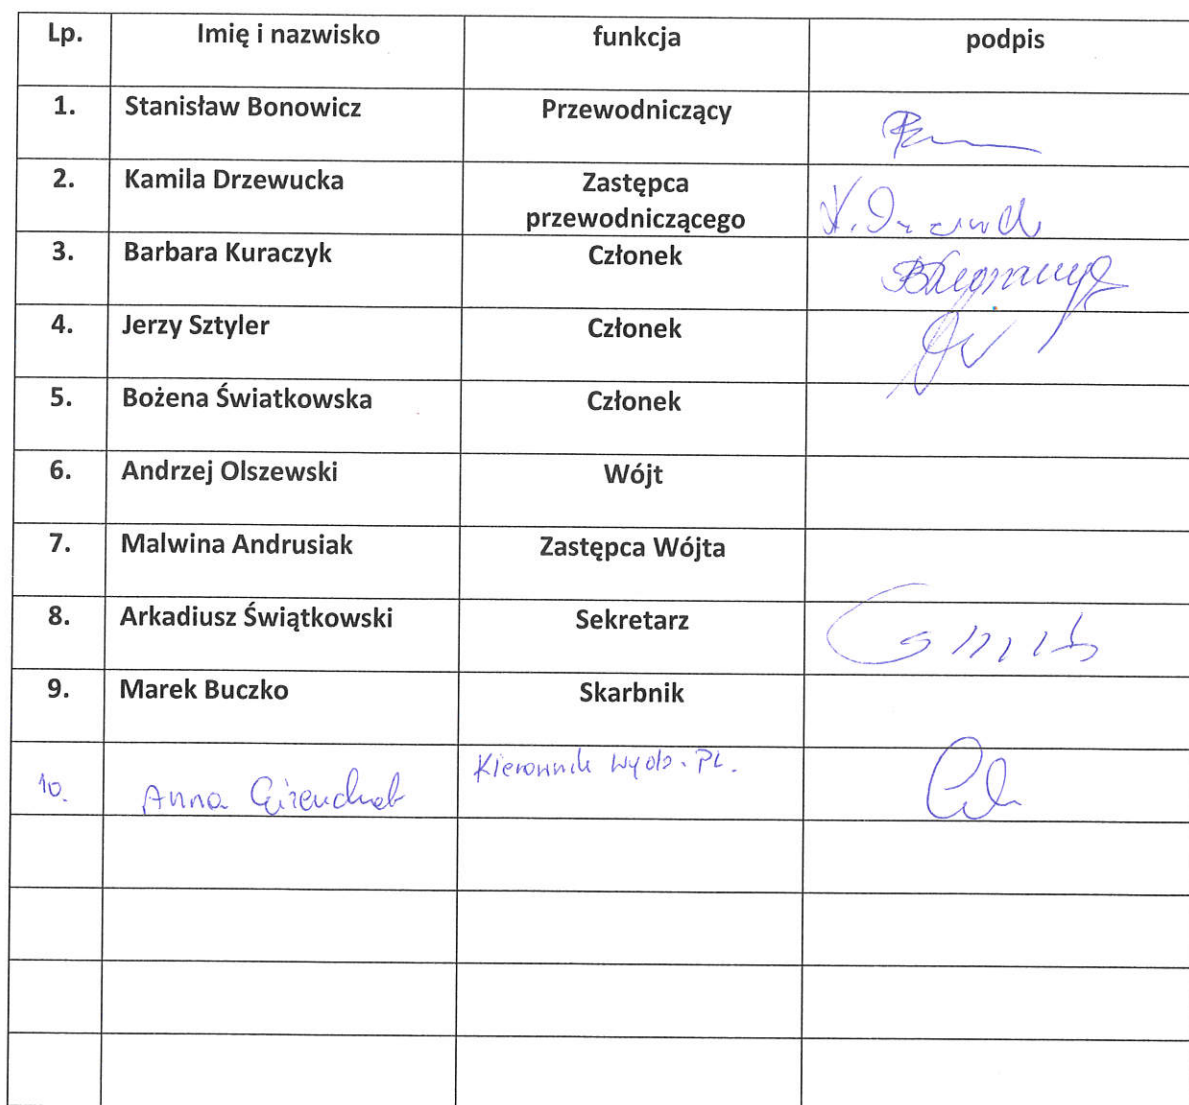 Lp. Imię i nazwisko funkcja podpis
1. Stanisław Bonowicz Przewodniczący
2. Kamila Drzewucka Zastępca
przewodniczącego
3. Barbara Kuraczyk Członek
4. Jerzy Sztyler Członek
5. Bożena Światkowska Członek
6. Andrzej Olszewski Wójt
7. Malwina Andrusiak Zastępca Wójta
8. Arkadiusz Świątkowski Sekretarz
9. Marek Buczko Skarbnik
10. Anna Kierownik Wydz. PL.